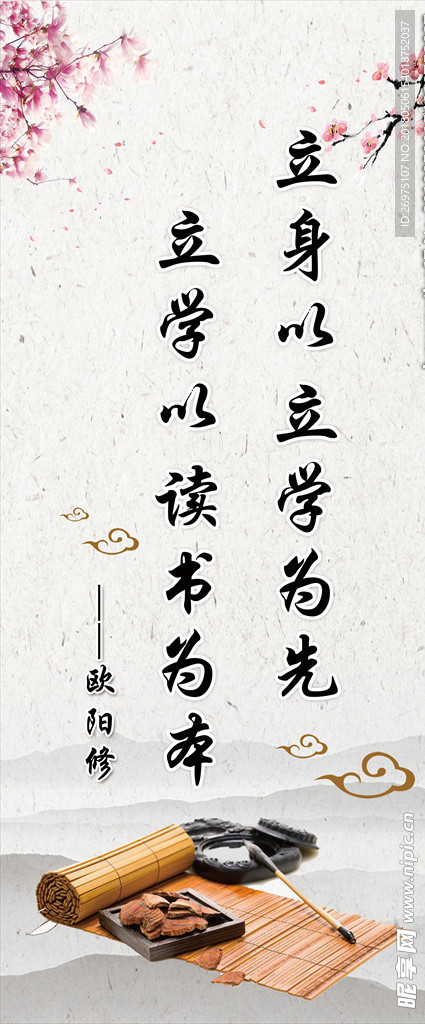 立身以立学为先
立学以读书为本
——欧阳修
ID:26975107 NO:20180506154018752037
昵享网 www.nipic.cn